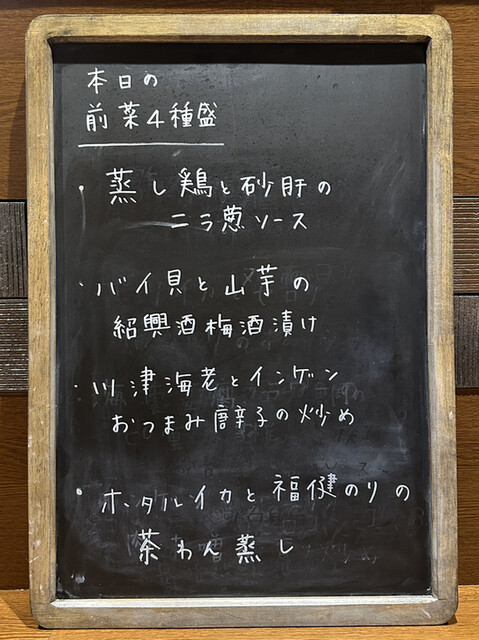 本日の
前菜4種盛
・蒸し鶏と砂肝の
ニラ葱ソース
・バイ貝と山芋の
紹興酒梅酒漬け
・川津海老とインゲン
おつまみ唐辛子の炒め
・ホタルイカと福健のりの
茶わん蒸し